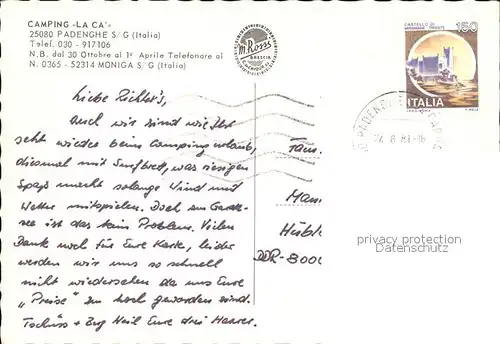 CAMPING «LA CA'»
25080 PADENGHE S/G (Italia)
Telef. 030 - 917106
N.B. dal 30 Ottobre al 1° Aprile Telefonare al
N. 0365 - 52314 MONIGA S/G (Italia)
M. Rossi
BRESCIA
CASTELLO DI
MIRAMARE - TRIESTE
150
ITALIA
PADENGHE
8.81-16
Liebe Richter's,
auch wir sind wie Ihr
jetzt wieder beim Campingurlaub,
diesmal mit Surfbrett, was riesigen
Spaß macht solange Wind und
Wetter mitspielen. Doch am Garda-
see ist das kein Problem. Vielen
Dank noch für Eure Karte, leider
werden wir uns so schnell
nicht wiedersehen da uns Eure
„Preise" zu hoch geworden sind.
Tschüss + Eure drei Maurer.
Fam.
Man
Hübl
DDR-800
privacy protection
Datenschutz